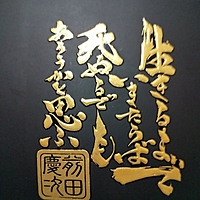 生きるまで
いきたらば
死ぬるでも
あろうかと思ふ
前田
慶次